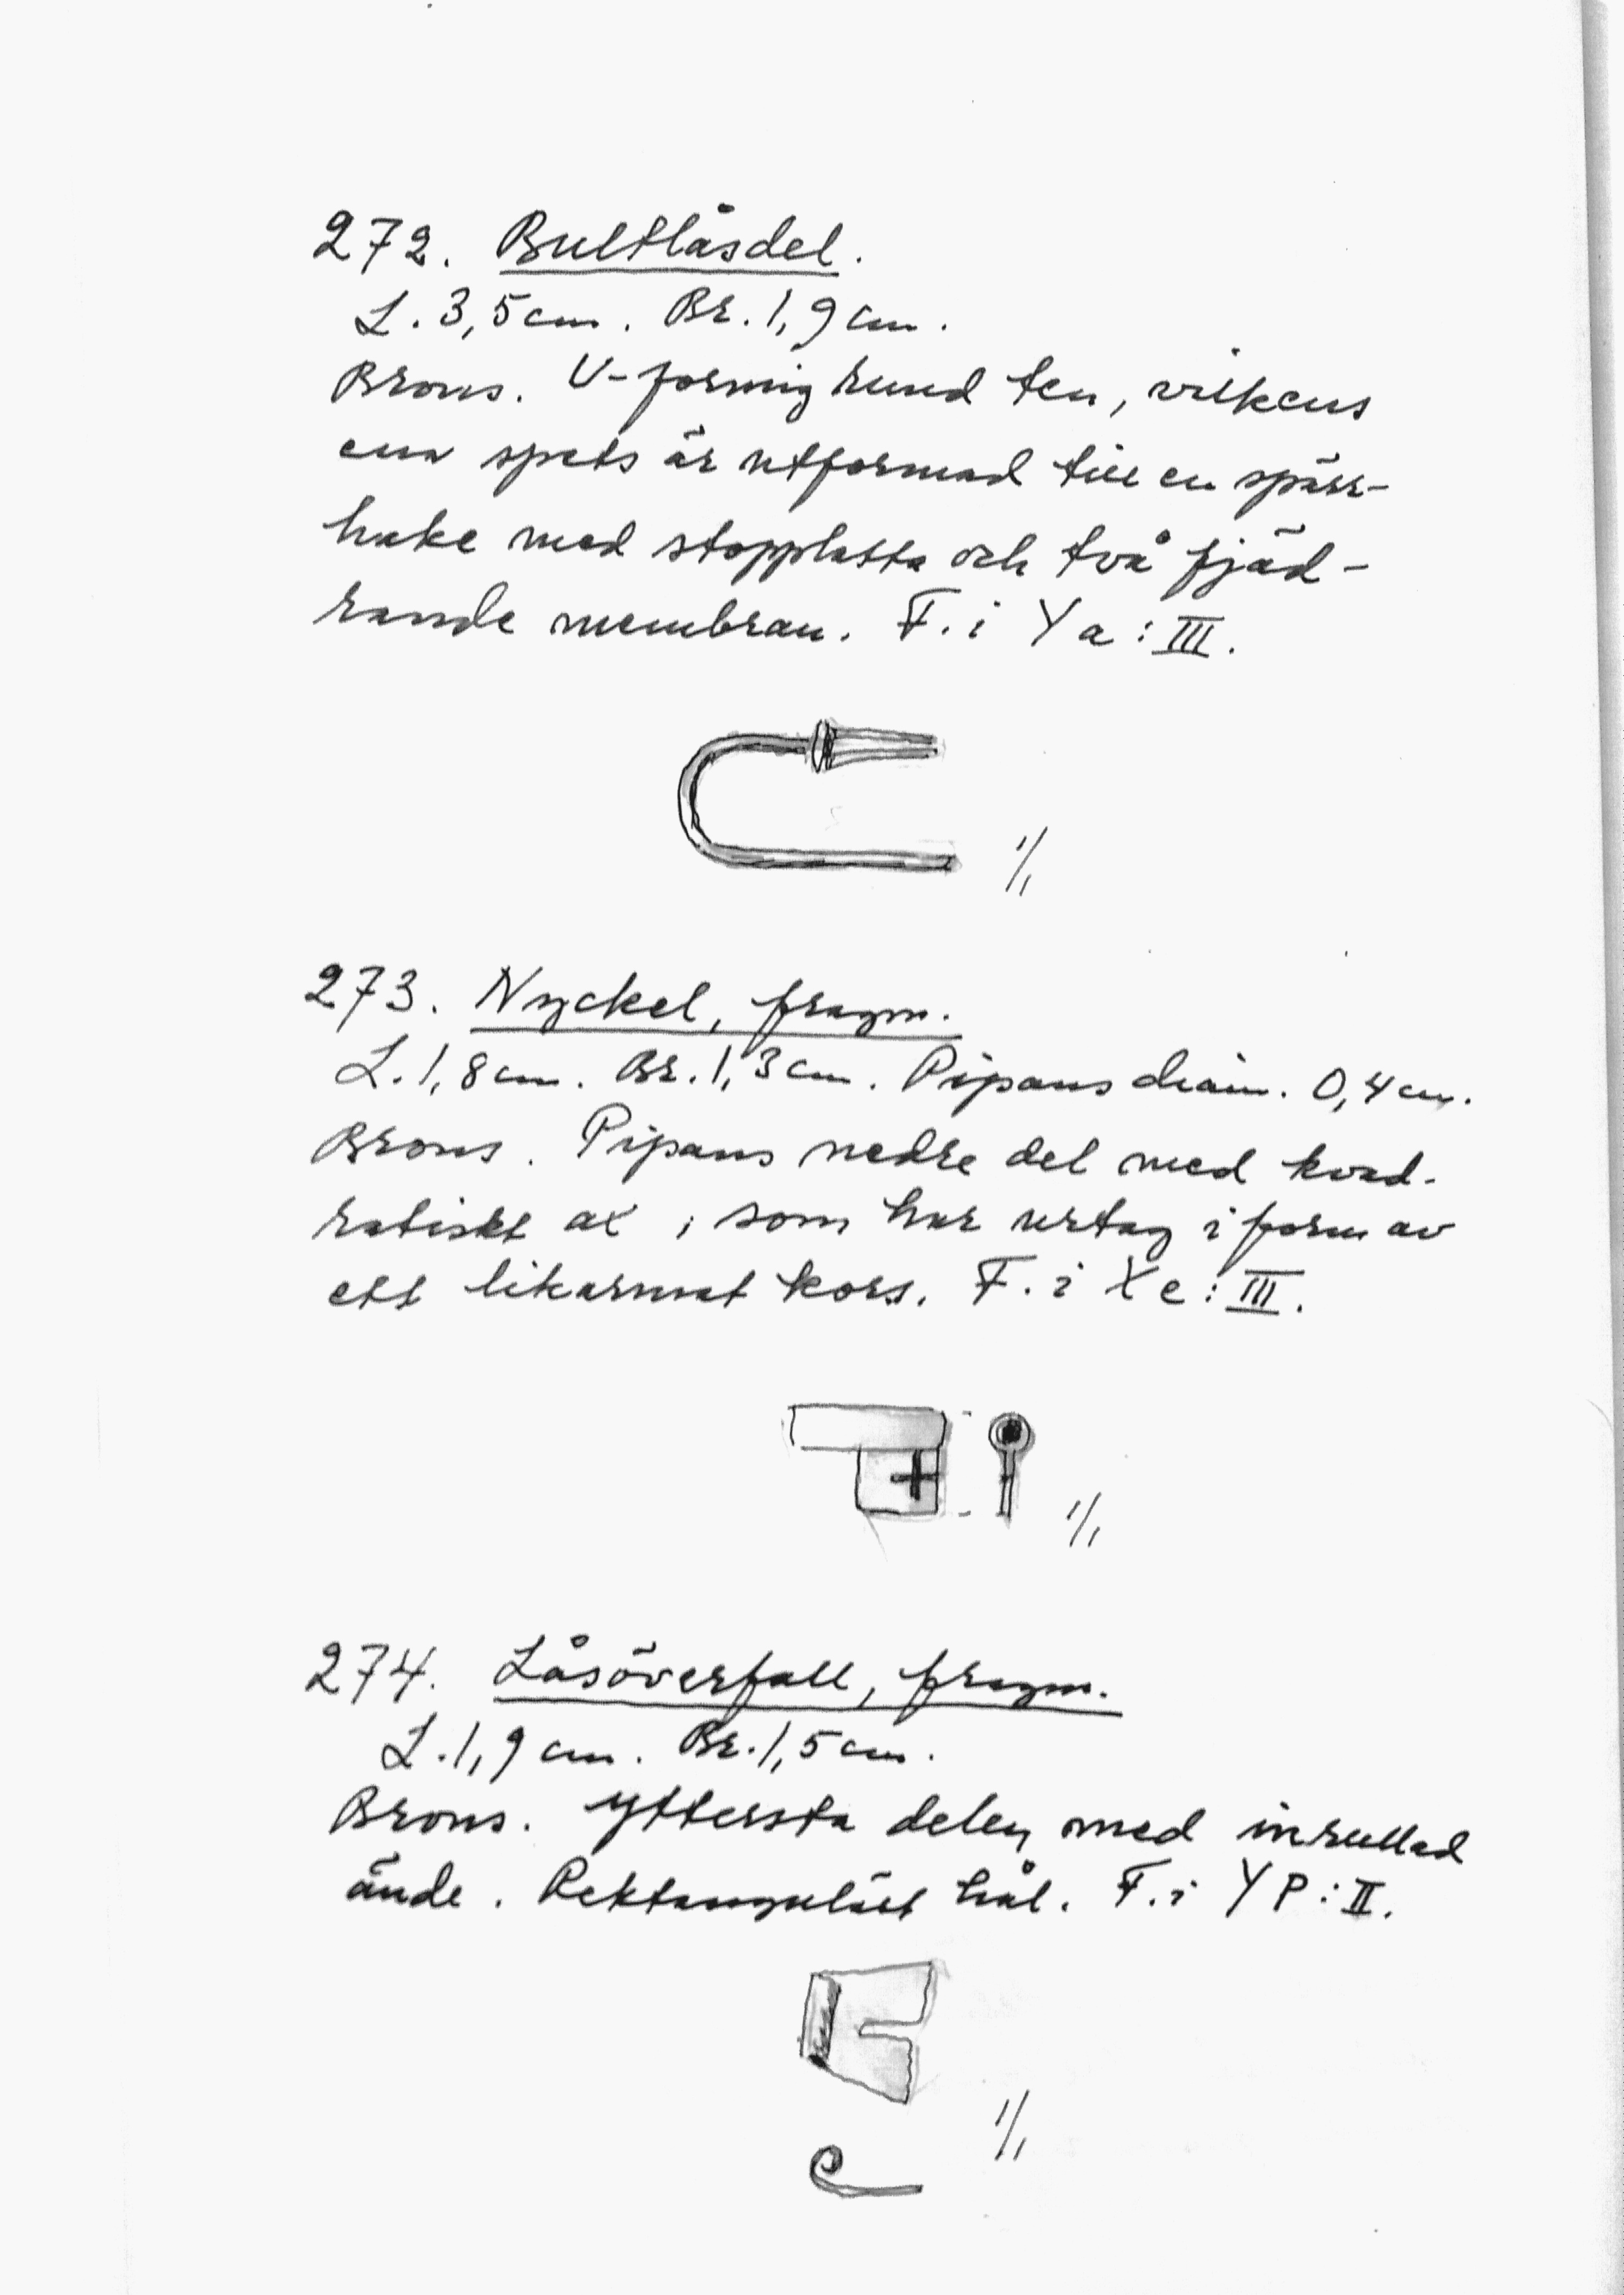 272. Bultlåsdel.
L. 3,5 cm. Br. 1,9 cm.
Brons. U-formig rund ten, vilkens
ena spets är utformad till en spärr-
hake med stopplatta och två fjäd-
rande membran. F. i Ya: III.
1/1
273. Nyckel, fragm.
L. 1,8 cm. Br. 1,3 cm. Pipans diam. 0,4 cm.
Brons. Pipans nedre del med kvad-
ratiskt ax, som har urtag i form av
ett likarmat kors. F. i Xe: III.
1/1
274. Låsöverfall, fragm.
L. 1,9 cm. Br. 1,5 cm.
Brons. Yttersta delen med inrullad
ände. Rektangulärt hål. F. i YP: II.
1/1